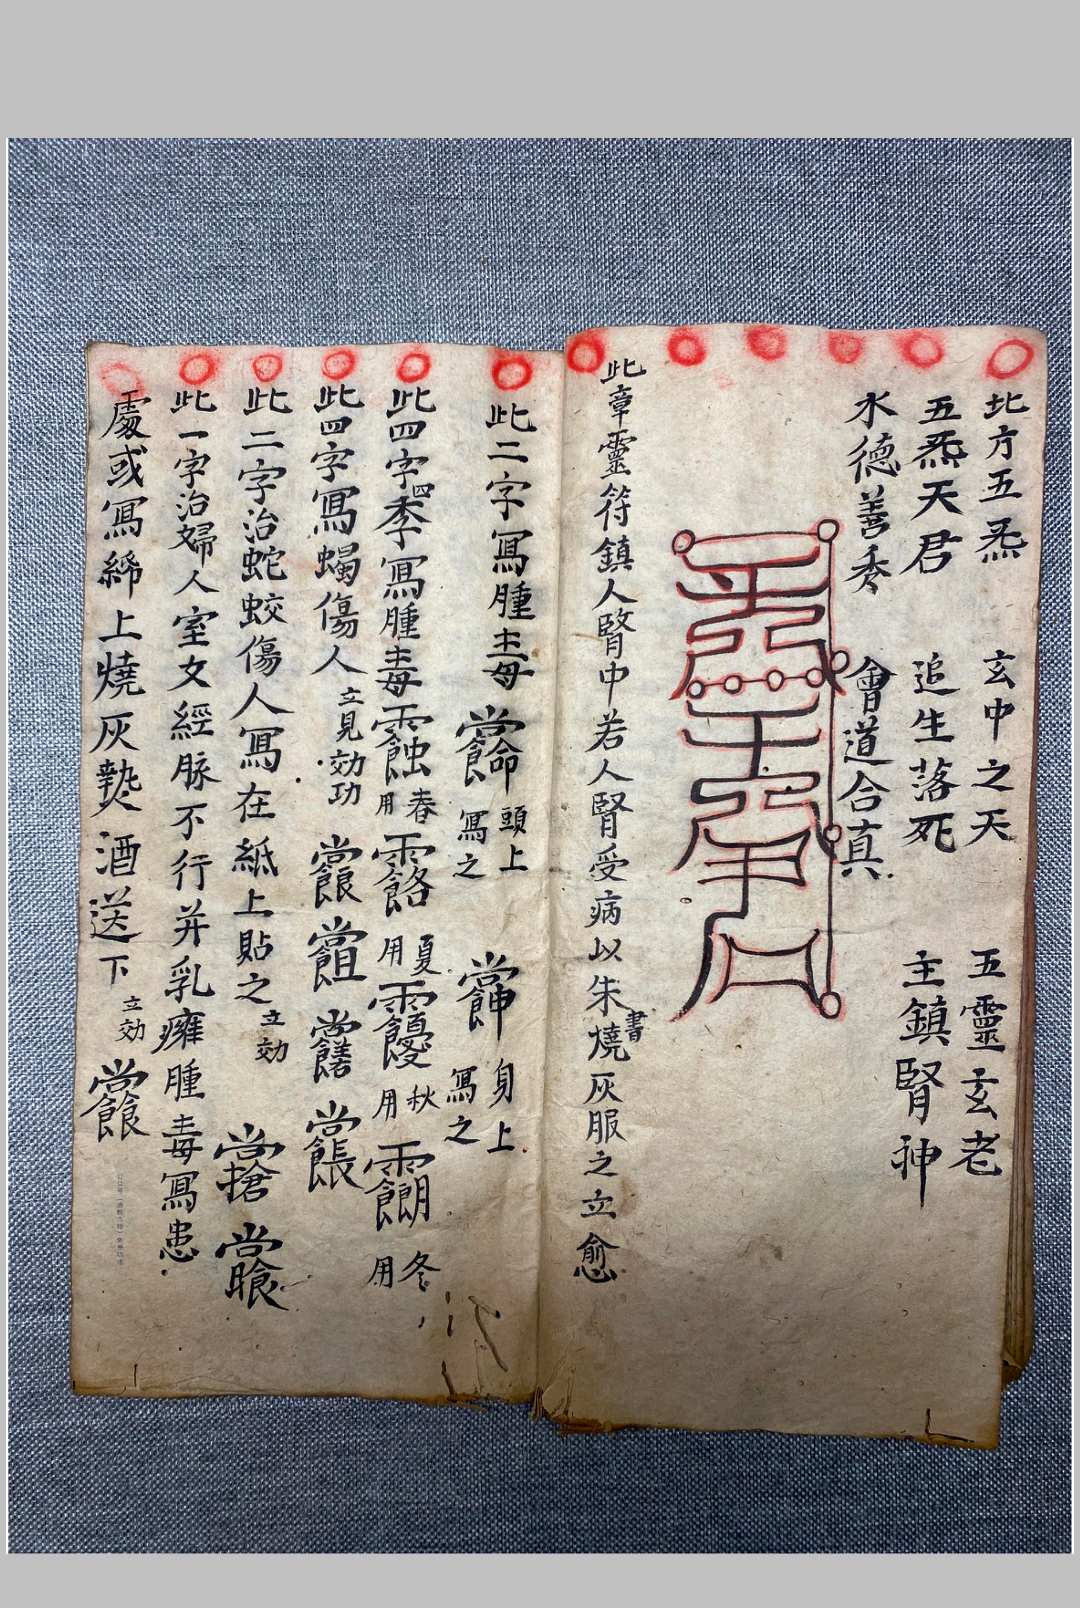 北方五炁 玄中之天 五靈玄老
五炁天君 追生落死 主鎮腎神
水德善秀 會道合真
此章靈符鎮人腎中若人腎受病以朱書燒灰服之立愈
此二字寫腫毒 頭上寫之 身上寫之
此四字四季寫腫毒 春用 夏用 秋用 冬用
此四字寫蝎傷人立見効功
此二字治蛇蛟傷人寫在紙上貼之立効
此一字治婦人室女經脉不行并乳癰腫毒寫患
處或寫綿上燒灰熱酒送下立効